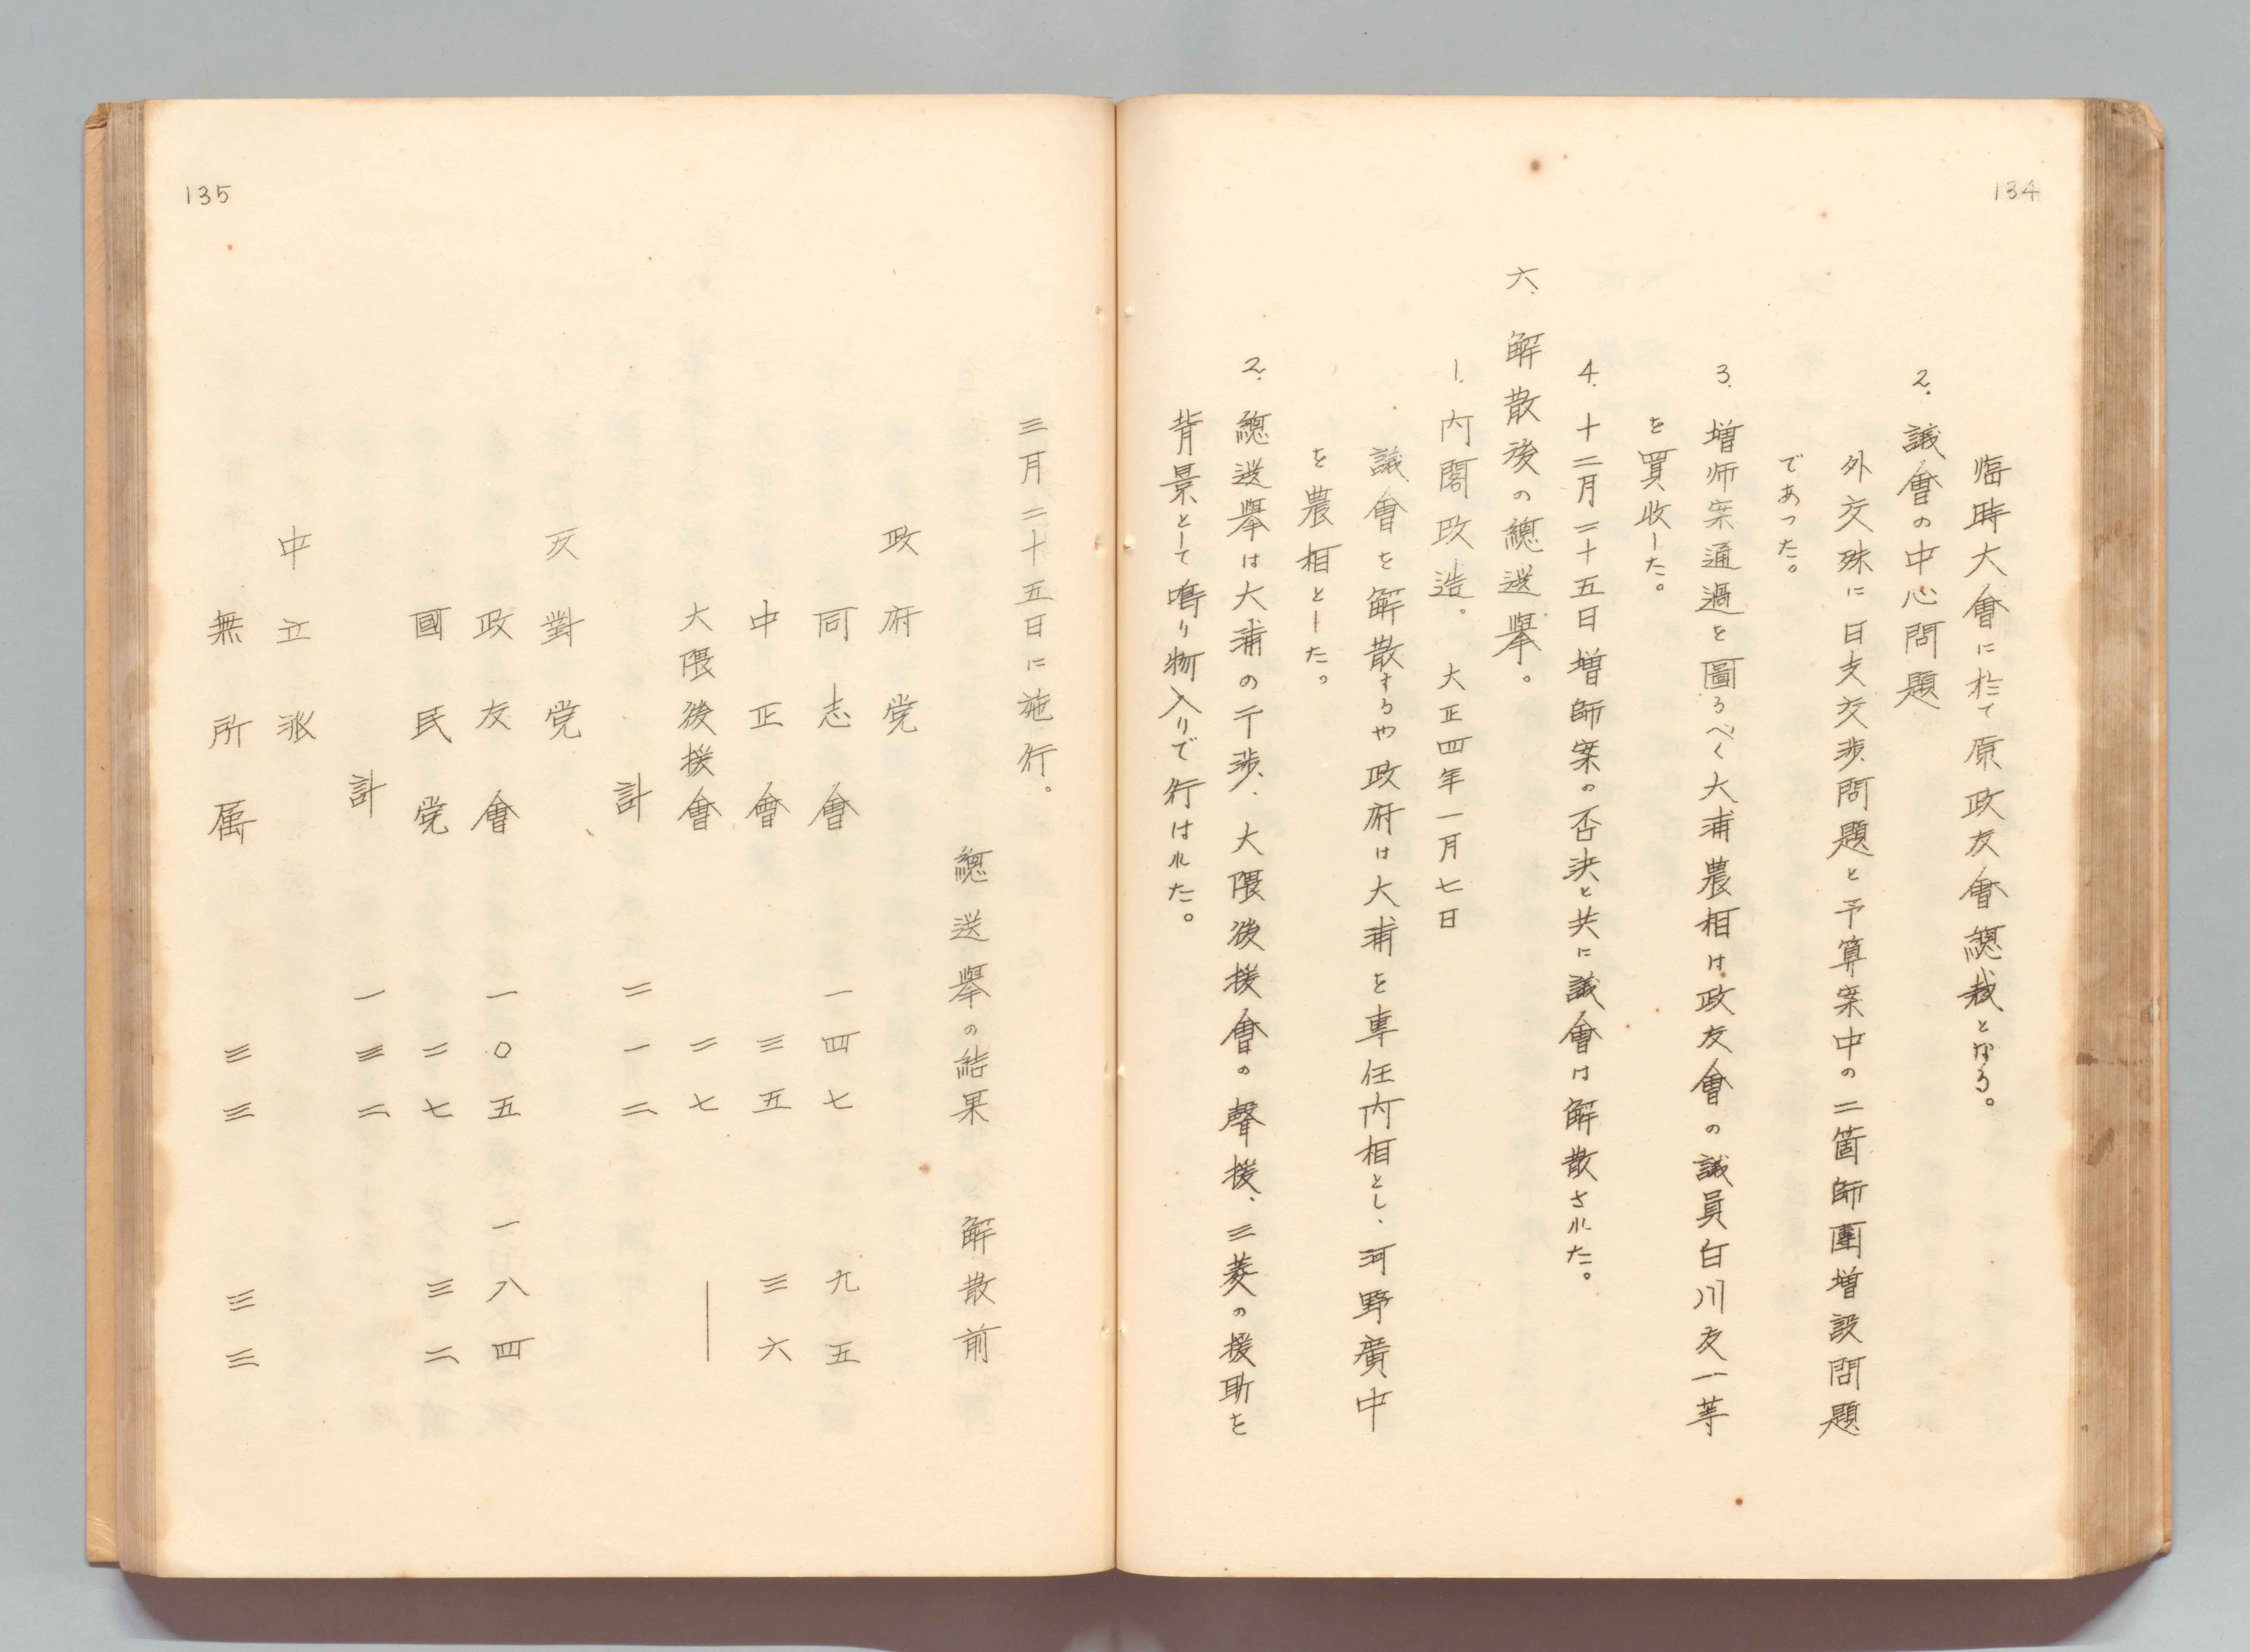 134
臨時大會に於て原政友會總裁となる。
2. 議會の中心問題
外交殊に日支交渉問題と予算案中の二箇師團増設問題
であった。
3. 増师案通過を圖るべく大浦農相は政友會の議員白川友一等
を買收した。
4. 十二月二十五日増師案の否決と共に議會は解散された。
六、解散後の總選擧。
1. 内閣改造。 大正四年一月七日
議會を解散するや政府は大浦を専任内相とし、河野廣中
を農相とした。
2. 總選擧は大浦の干渉、大隈後援會の聲援、三菱の援助を
背景として鳴り物入りで行はれた。
135
三月二十五日に施行。
總選擧の結果 解散前
政府党
同志會 一四七 九五
中正會 三五 三六
大隈後援會 二七 ―
計 二一二
反對党
政友會 一〇五 一八四
國民党 二七 三二
計 一三二
中立派
無所属 三三 三三